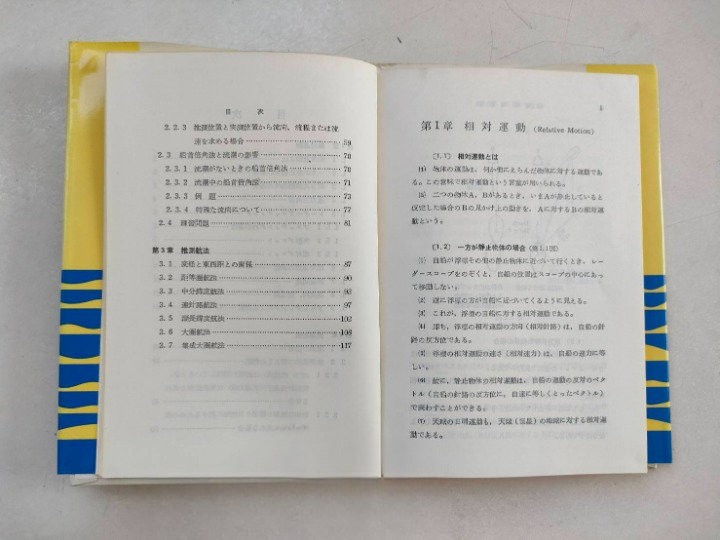 目 次
2.2.3 推測位置と実測位置から流向、流程または流
速を求める場合 69
2.3 船首倍角法と流潮の影響 76
2.3.1 流潮がないときの船首倍角法 76
2.3.2 流潮中の船首倍角法 71
2.3.3 例 題 73
2.3.4 特殊な流向について 77
2.4 練習問題 81
第3章 推測航法
3.1 変経と東西距との関係 87
3.2 距等圏航法 90
3.3 中分緯度航法 92
3.4 連針路航法 97
3.5 漸長緯度航法 102
3.6 大圏航法 108
3.7 集成大圏航法 117
1
第1章 相対運動 (Relative Motion)
〔1.1〕 相対運動とは
(1) 物体の運動は、何か他にえらんだ物体に対する運動であ
る。この意味で相対運動という言葉が用いられる。
(2) 二つの物体A、Bがあるとき、いまAが静止していると
仮定した場合のBの見かけ上の動きを、Aに対するBの相対運
動という。
〔1.2〕 一方が静止物体の場合 (第1.1図)
(1) 自船が浮標その他の静止物体に近づいて行くとき、レー
ダースコープをのぞくと、自船の位置はスコープの中心にあっ
て移動しない。
(2) 逆に浮標の方が自船に近づいてくるように見える。
(3) これが、浮標の自船に対する相対運動である。
(4) 即ち、浮標の相対運動の方向(相対針路)は、自船の針
路の反方位である。
(5) 浮標の相対運動の速さ(相対速力)は、自船の速力に等
しい。
(6) 故に、静止物体の相対運動は、自船の運動の反対のベク
トル(自船の針路の反方位に、自速に等しくとったベクトル)
で表わすことができる。
(7) 天体の日周運動も、天球(恒星)の地球に対する相対運
動である。